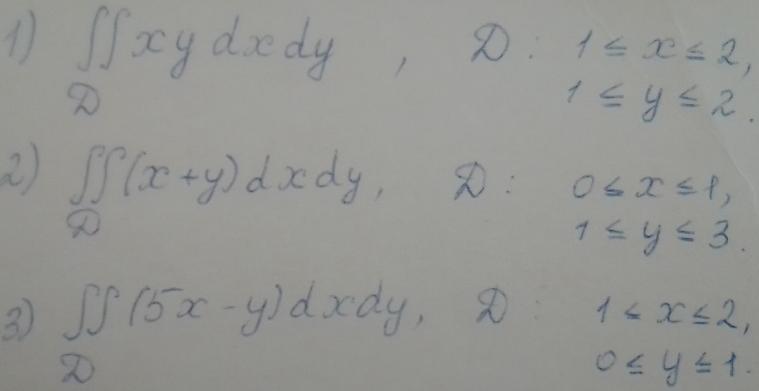 1) ∬xy dx dy, D: 1 ≤ x ≤ 2,
D 1 ≤ y ≤ 2.
2) ∬(x+y) dx dy, D: 0 ≤ x ≤ 1,
D 1 ≤ y ≤ 3.
3) ∬(5x-y) dx dy, D: 1 ≤ x ≤ 2,
D 0 ≤ y ≤ 1.